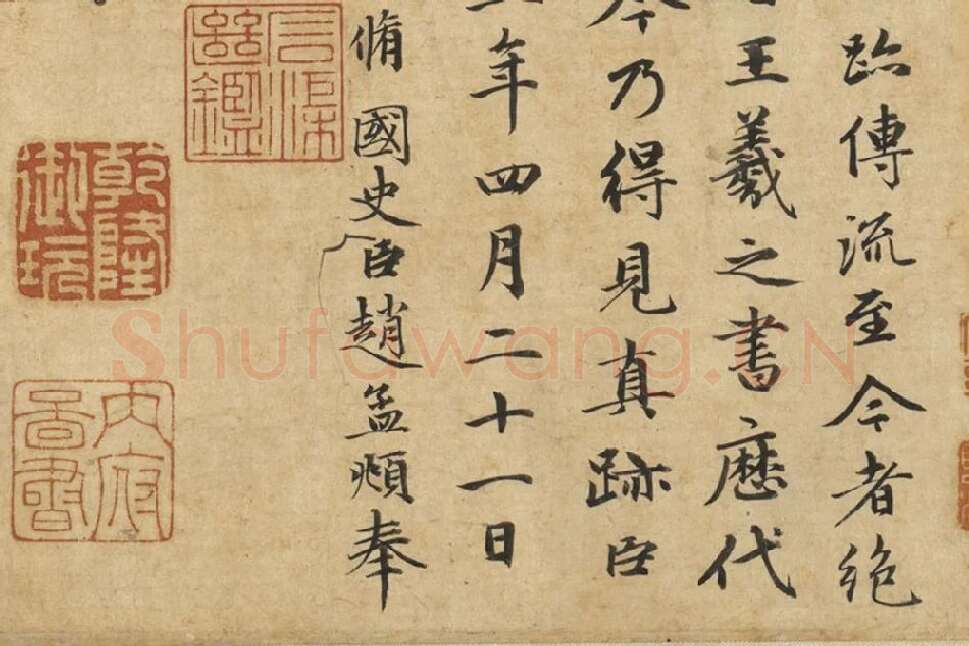 跡傳流至今者絶
王羲之書歷代
今乃得見真跡臣
年四月二十一日
脩國史臣趙孟頫奉
石渠繼鑑
乾隆御玩
內府圖書
Shufawang.CN